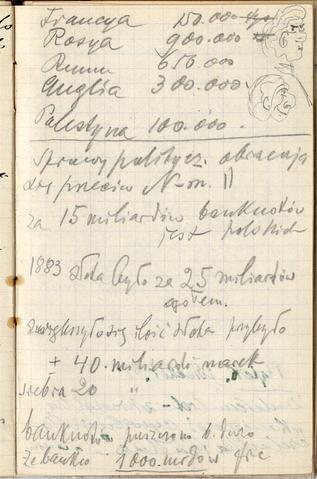 Francya 150.000
Rosya 900.000
Rumu 650.000
Anglia 300.000
Palestyna 100.000.
Sprawy politycz. obracają
się przeciw
za 15 miliardów banknotów
jest polskich
1883 złota było za 25 miliardów
ogółem.
zwiększyło się ilość złota przybyło
+ 40. miliardi marek
srebra 20 "
banknotów puszczono b. dużo
że banko 1000.